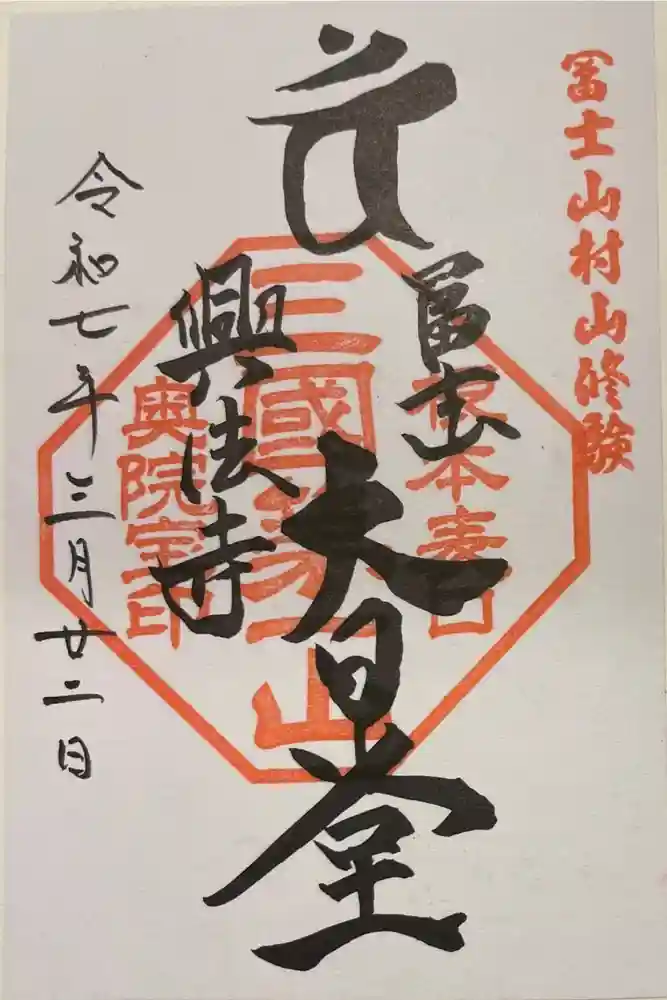 冨士山村山修験
冨士
大日堂
興法寺
根本表口
三國第一山
奥院宝印
令和七年三月廿二日